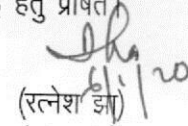 हेतु प्रेषित।
6/1/20
(रत्नेश झा)